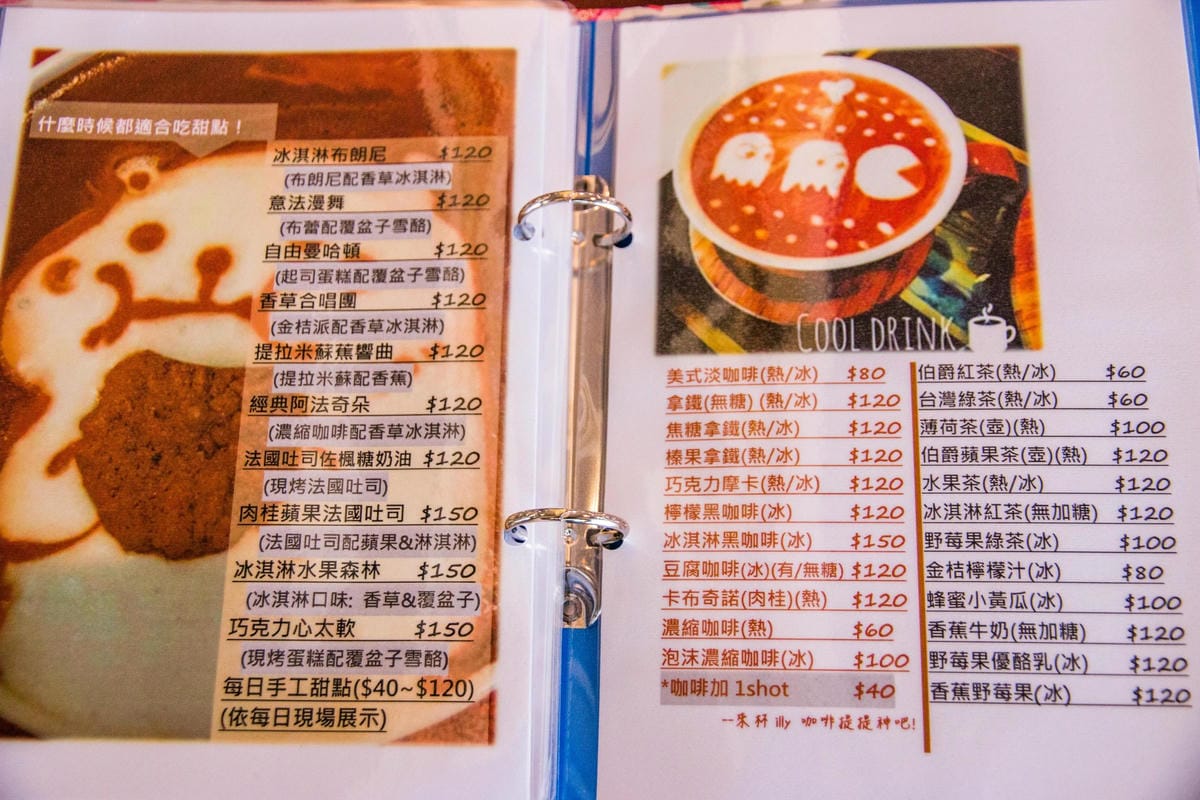 什麼時候都適合吃甜點！
冰淇淋布朗尼 $120
(布朗尼配香草冰淇淋)
意法漫舞 $120
(布蕾配覆盆子雪酪)
自由曼哈頓 $120
(起司蛋糕配覆盆子雪酪)
香草合唱團 $120
(金桔派配香草冰淇淋)
提拉米蘇蕉響曲 $120
(提拉米蘇配香蕉)
經典阿法奇朵 $120
(濃縮咖啡配香草冰淇淋)
法國吐司佐楓糖奶油 $120
(現烤法國吐司)
肉桂蘋果法國吐司 $150
(法國吐司配蘋果&淋淇淋)
冰淇淋水果森林 $150
(冰淇淋口味: 香草&覆盆子)
巧克力心太軟 $150
(現烤蛋糕配覆盆子雪酪)
每日手工甜點($40~$120)
(依每日現場展示)
COOL DRINK
美式淡咖啡(熱/冰) $80
拿鐵(無糖) (熱/冰) $120
焦糖拿鐵(熱/冰) $120
榛果拿鐵(熱/冰) $120
巧克力摩卡(熱/冰) $120
檸檬黑咖啡(冰) $120
冰淇淋黑咖啡(冰) $150
豆腐咖啡(冰)(有/無糖) $120
卡布奇諾(肉桂)(熱) $120
濃縮咖啡(熱) $60
泡沫濃縮咖啡(冰) $100
*咖啡加 1shot $40
--來杯 illy 咖啡提提神吧!
伯爵紅茶(熱/冰) $60
台灣綠茶(熱/冰) $60
薄荷茶(壺)(熱) $100
伯爵蘋果茶(壺)(熱) $120
水果茶(熱/冰) $120
冰淇淋紅茶(無加糖) $120
野莓果綠茶(冰) $100
金桔檸檬汁(冰) $80
蜂蜜小黃瓜(冰) $100
香蕉牛奶(無加糖) $120
野莓果優酪乳(冰) $120
香蕉野莓果(冰) $120